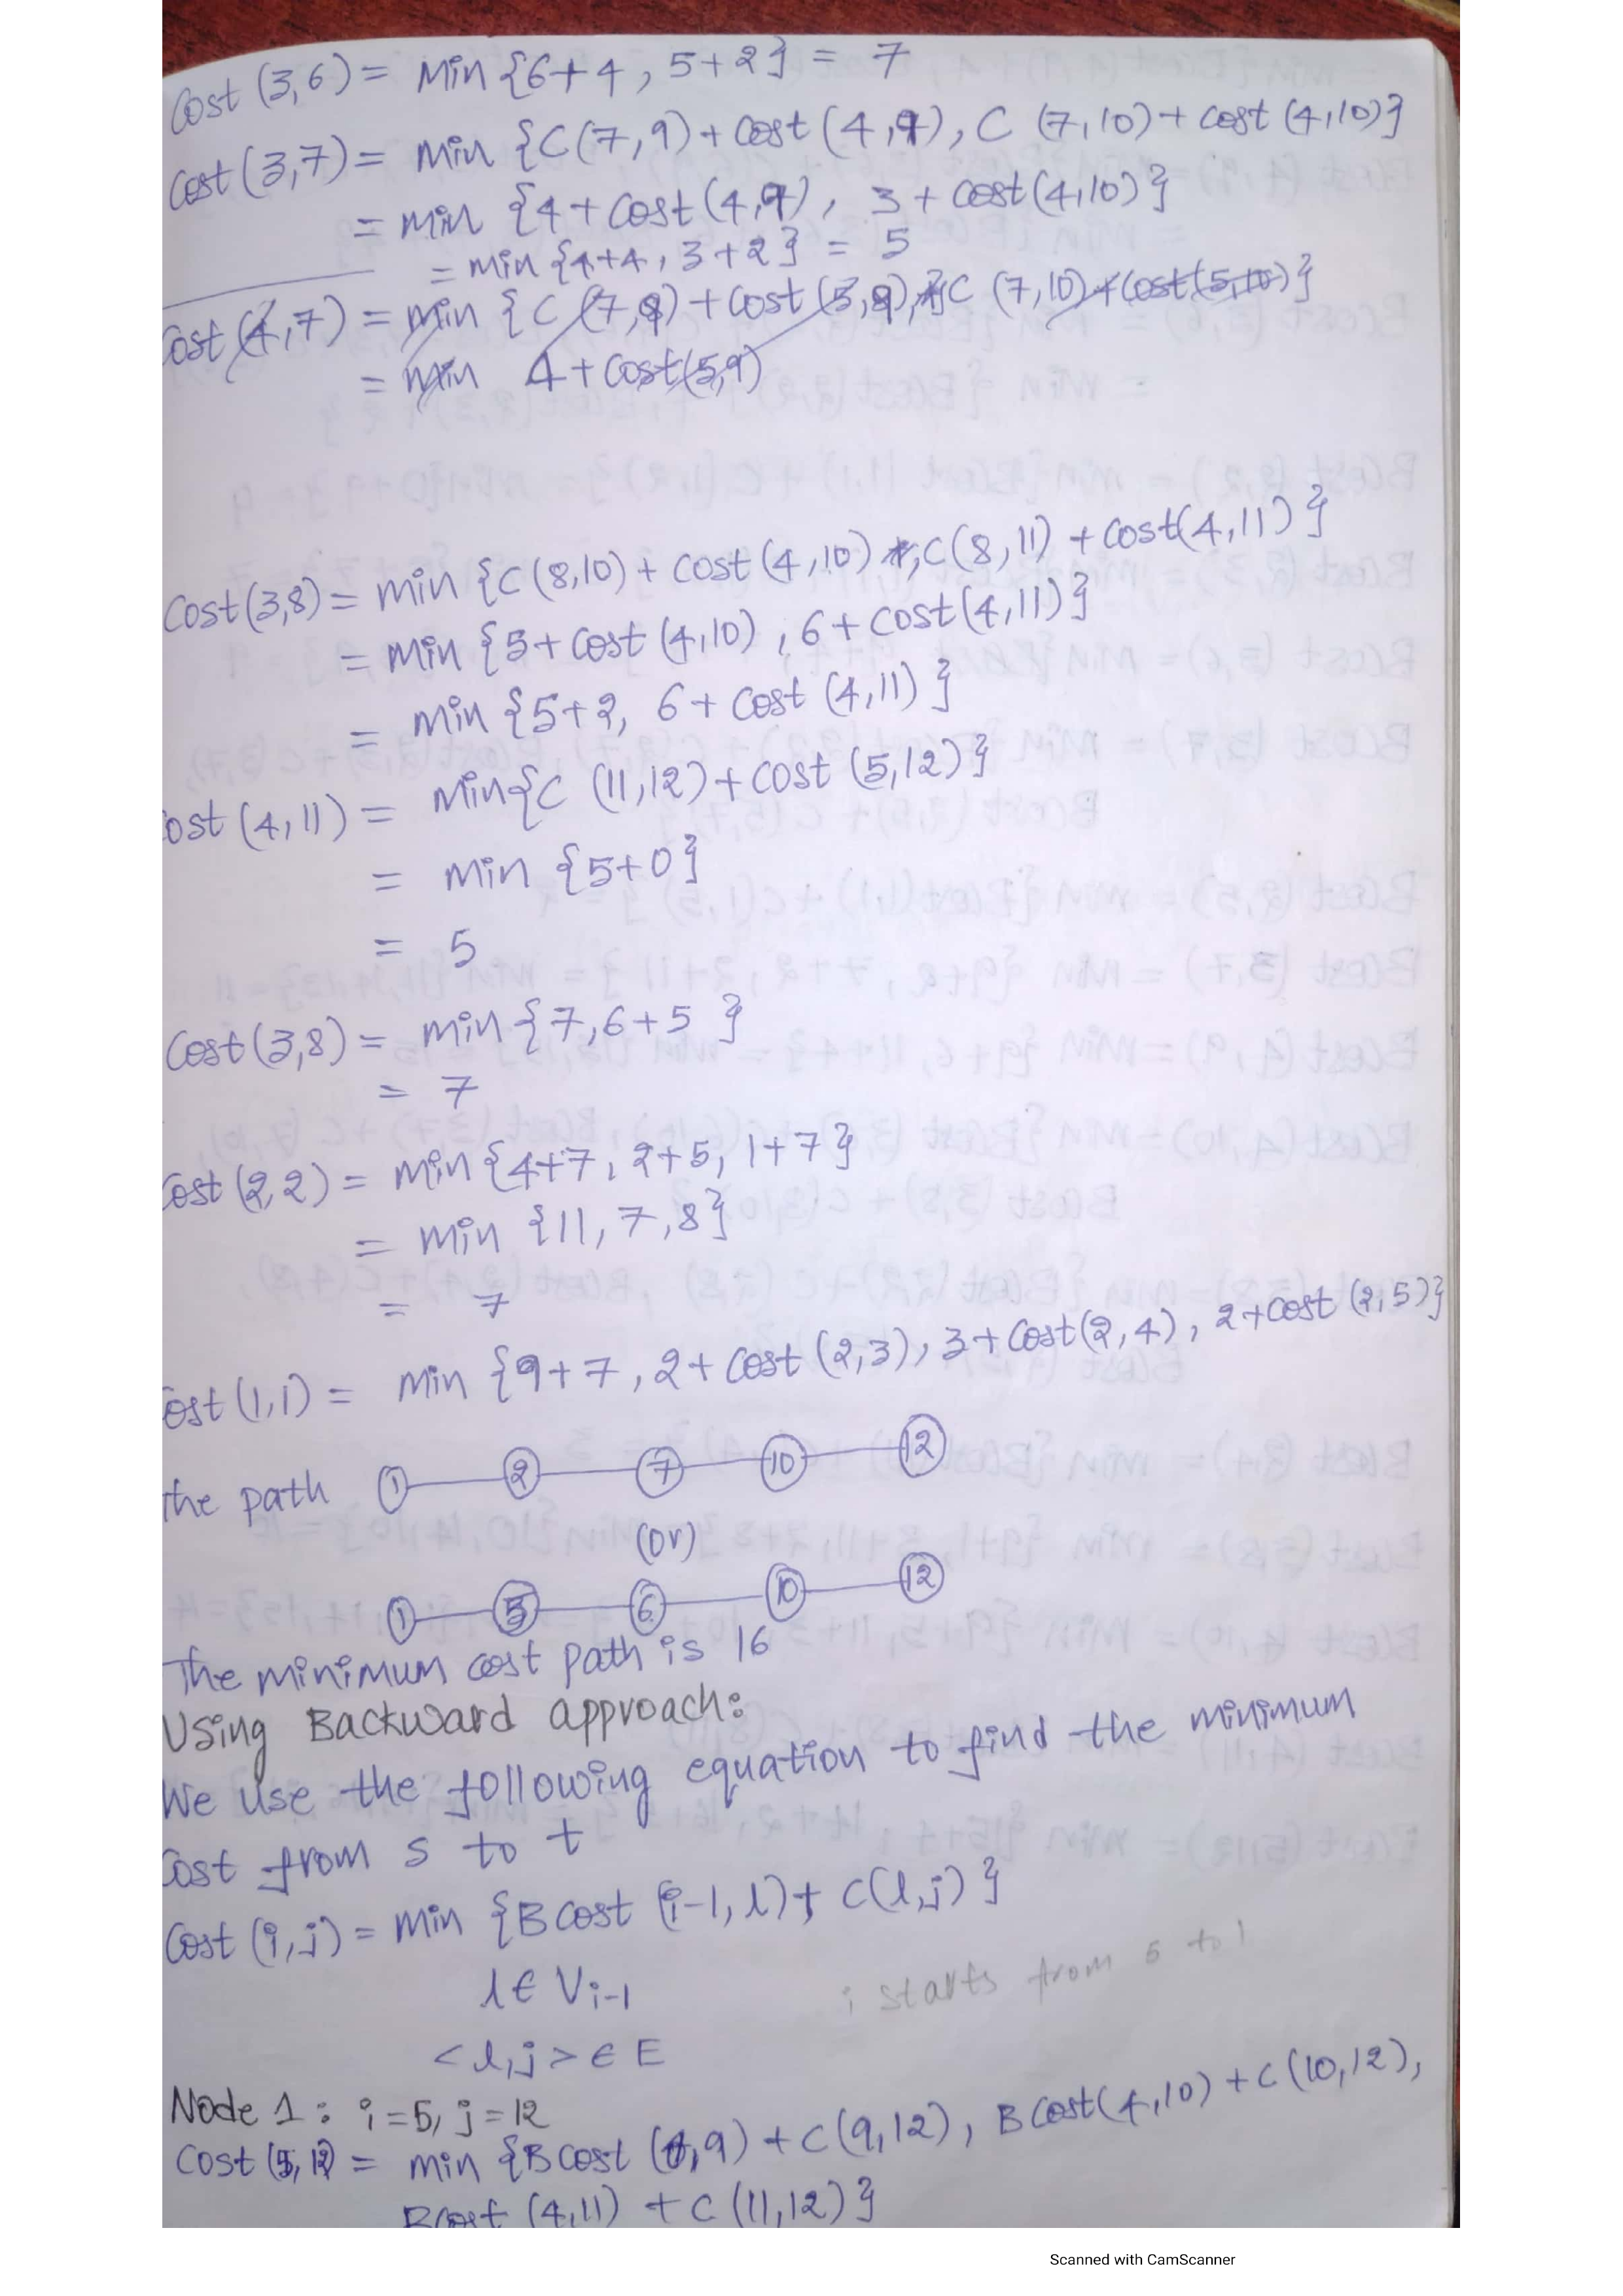 Cost (3,6) = Min {6+4, 5+2} = 7
Cost (3,7) = Min {C(7,9) + Cost (4,9), C (7,10) + Cost (4,10)}
= Min {4+Cost(4,9), 3+Cost(4,10)}
= Min {4+4, 3+2} = 5
ost (4,7) = Min {C (7,9) + Cost (5,9), C (7,10) + Cost(5,10)}
= Min 4+Cost(5,9)
Cost(3,8) = Min {C(8,10) + Cost (4,10), C(8,11) + Cost(4,11)}
= Min {5+Cost (4,10), 6+Cost(4,11)}
= Min {5+2, 6+Cost (4,11)}
ost (4,11) = Min{C (11,12)+Cost (5,12)}
= Min {5+0}
= 5
Cost(3,8) = Min {7,6+5}
= 7
Cost (2,2) = Min {4+7, 2+5, 1+7}
= Min {11, 7, 8}
= 7
Cost (1,1) = Min {9+7, 2+Cost (2,3), 3+Cost(2,4), 2+Cost (2,5)}
The path 1 2 7 10 12
(or)
1 5 6 10 12
The minimum cost path is 16
Using Backward approach:
We use the following equation to find the minimum
Cost from s to t
Cost (i,j) = Min {B Cost (i-1, l) + C(l,j)}
l ∈ Vi-1
i starts from 5 to 1
<l,j> ∈ E
Node 1: i=5, j=12
Cost (5,12) = Min {B Cost (4,9) + C (9,12), B Cost(4,10) + C (10,12),
BCost (4,11) + C (11,12)}
Scanned with CamScanner